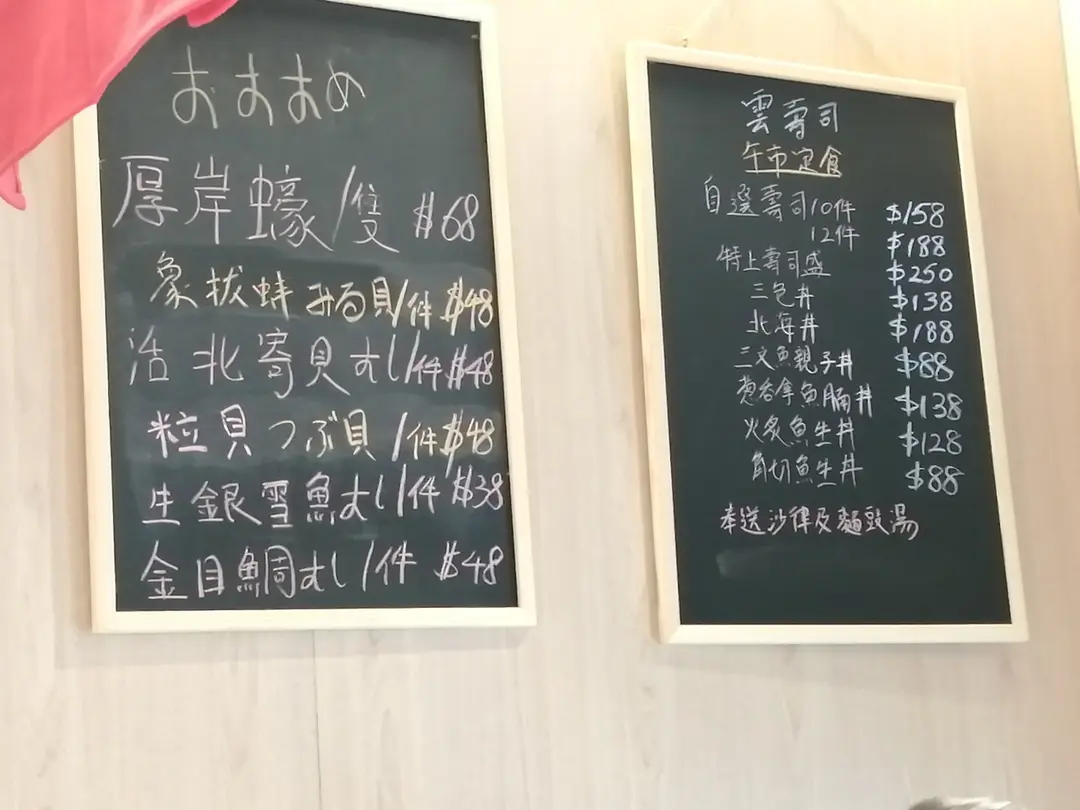 おすすめ
厚岸蠔/隻 $68
象拔蚌 みる貝/件 $48
活北寄貝すし/件 $48
粒貝つぶ貝/件 $48
生銀雪魚すし/件 $38
金目鯛すし/件 $48
雲壽司
午市定食
自選壽司10件 $158
12件 $188
特上壽司盛 $250
三色丼 $138
北海丼 $188
三文魚親子丼 $88
葱吞拿魚腩丼 $138
火炙魚生丼 $128
角切魚生丼 $88
奉送沙律及麵豉湯